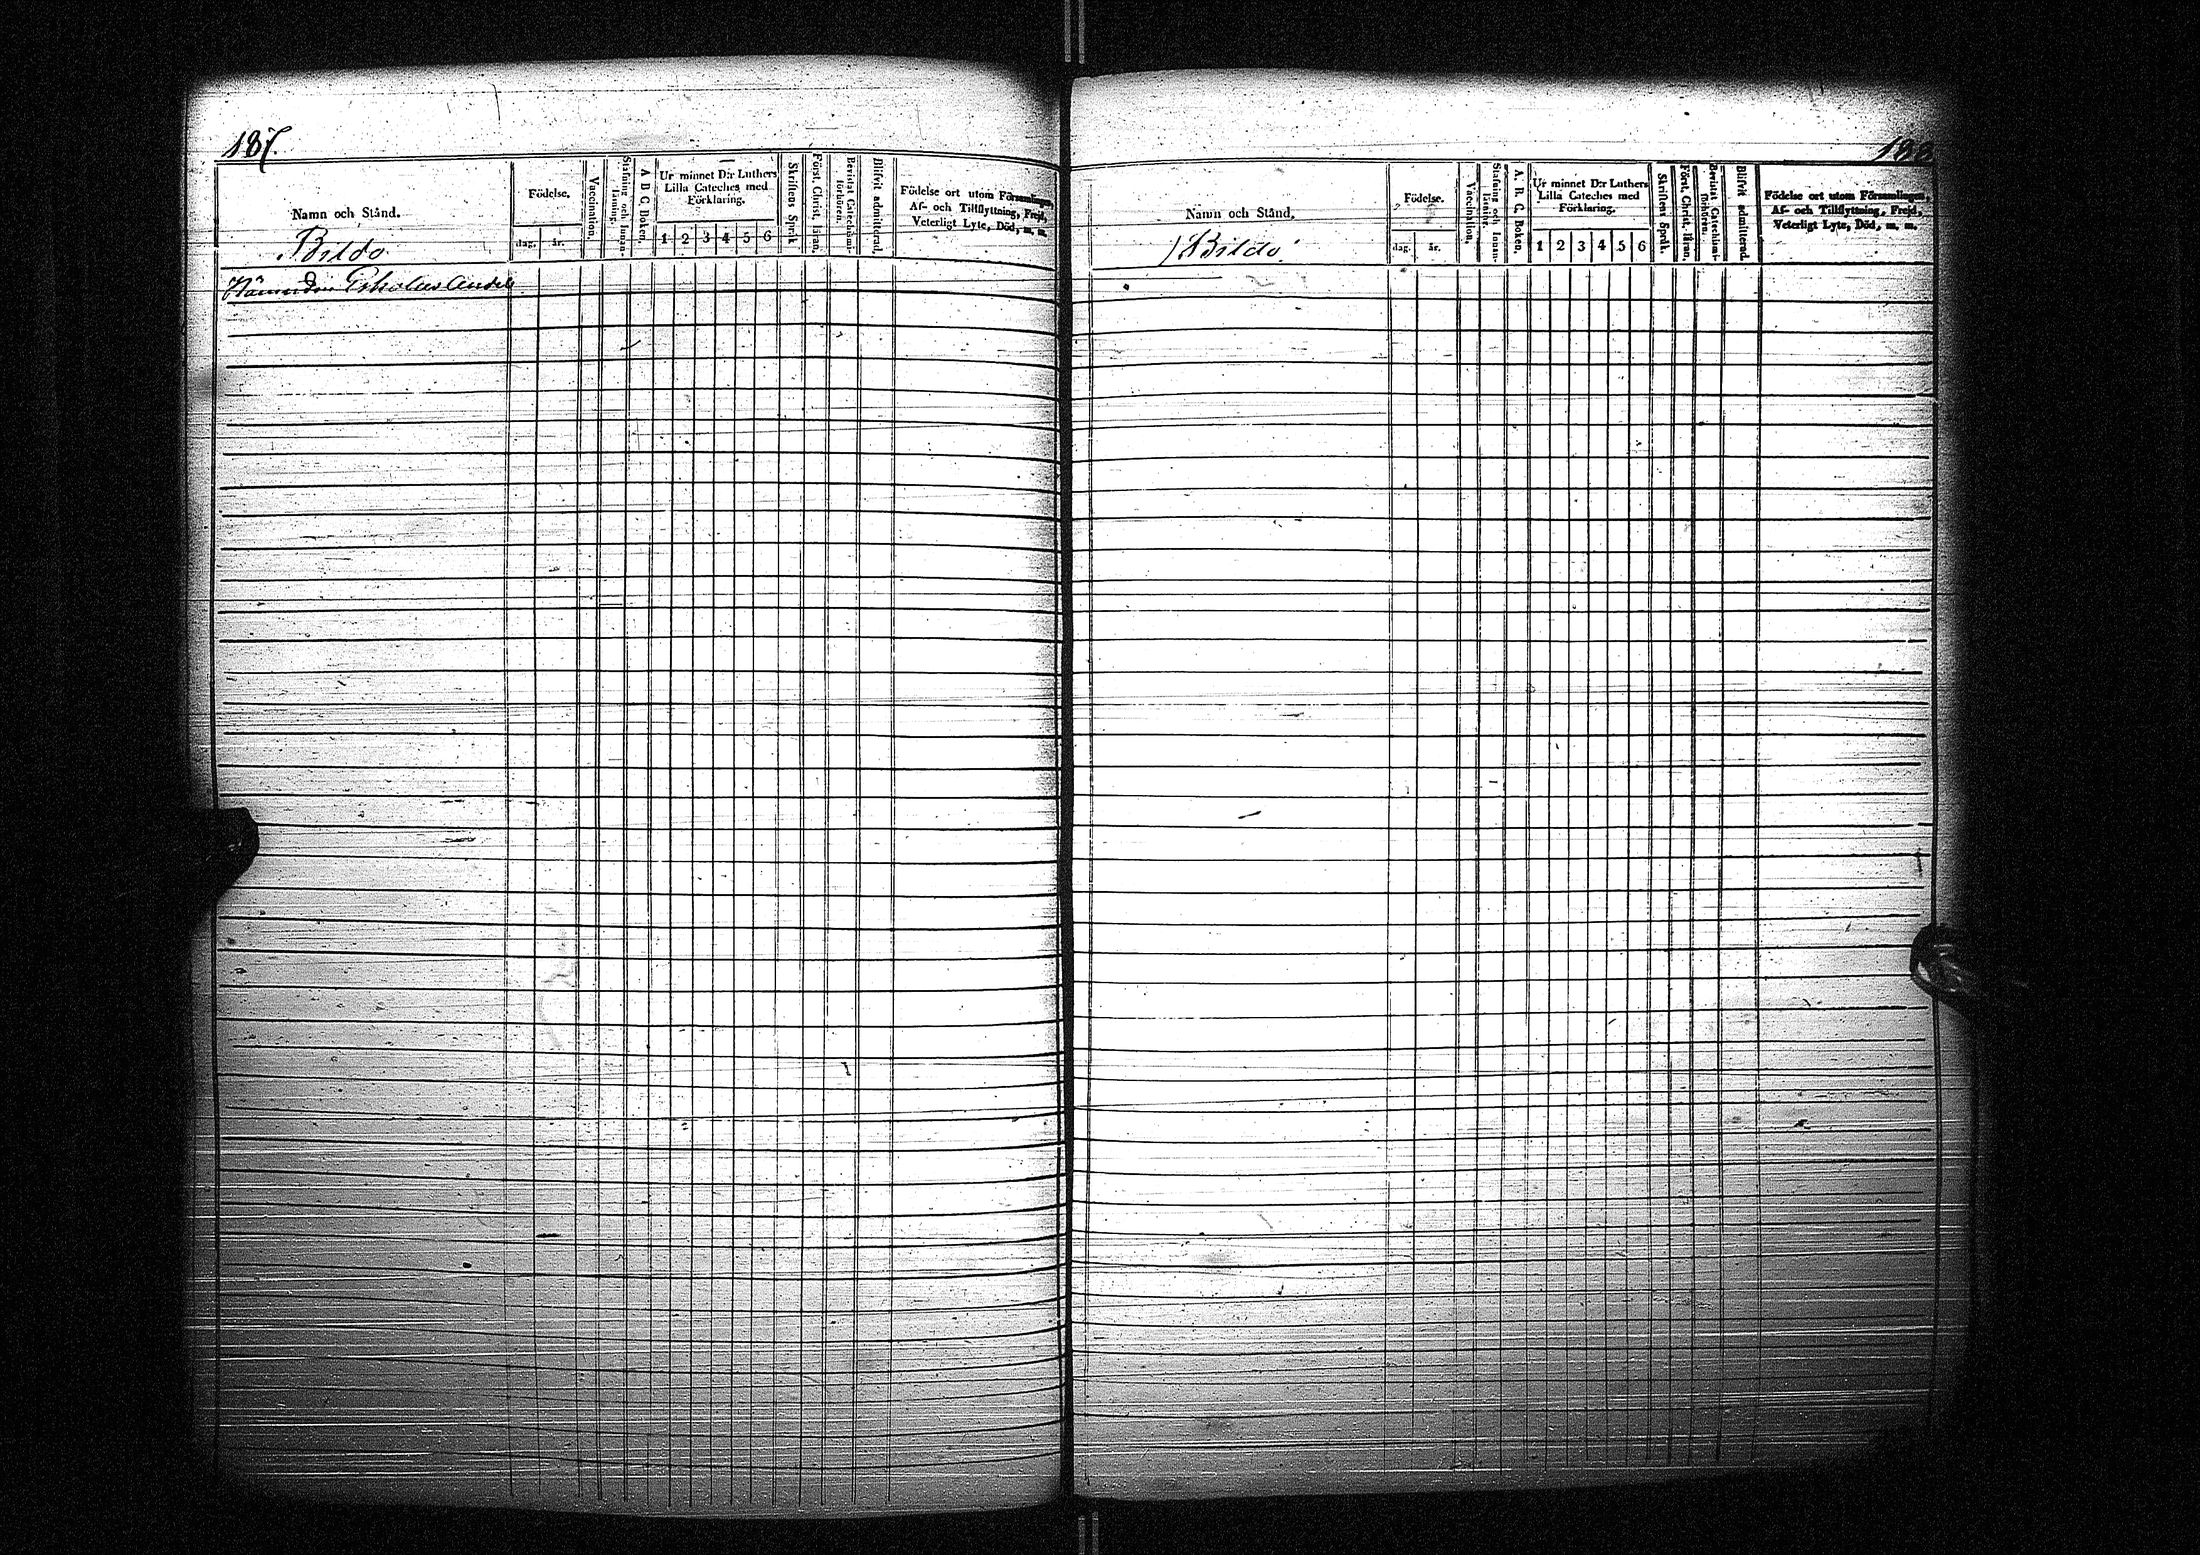 187.
Namn och Stånd.
Bildö
Födelse.
dag.
år.
Vaccination.
Stafning och Innan-
läsning.
A B C Boken.
Ur minnet D:r Luthers
Lilla Cateches med
Förklaring.
1 2 3 4 5 6
Skriftens Språk
Först. Christ. läran.
Bevistat Catechismi-
förhören.
Blifvit admitterad.
Födelse ort utom Församlingen,
Af- och Tillflyttning, Frejd,
Veterligt Lyte, Död, m. m.
188
Namn och Stånd.
Bildö
Födelse.
dag.
år.
Vaccination.
Stafning och Innan-
läsning.
A. B. C. Boken.
Ur minnet D:r Luthers
Lilla Cateches med
Förklaring.
1 2 3 4 5 6
Skriftens Språk.
Först. Christ. läran.
Bevistat Catechismi-
förhören.
Blifvit admitterad.
Födelse ort utom Församlingen,
Af- och Tillflyttning, Frejd,
Veterligt Lyte, Död, m. m.